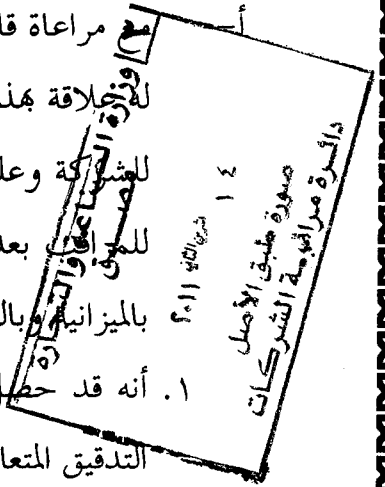 أ- مع مراعاة قا
له علاقة بهذ
للشركة وعل
للمراقب بعد
بالميزانية وبال
١. أنه قد حصل
التدقيق المتعا
وزارة الصناعة والتجارة
١٤
تشرين الثاني ٢٠١١
صورة طبق الأصل
دائرة مراقبة الشركات